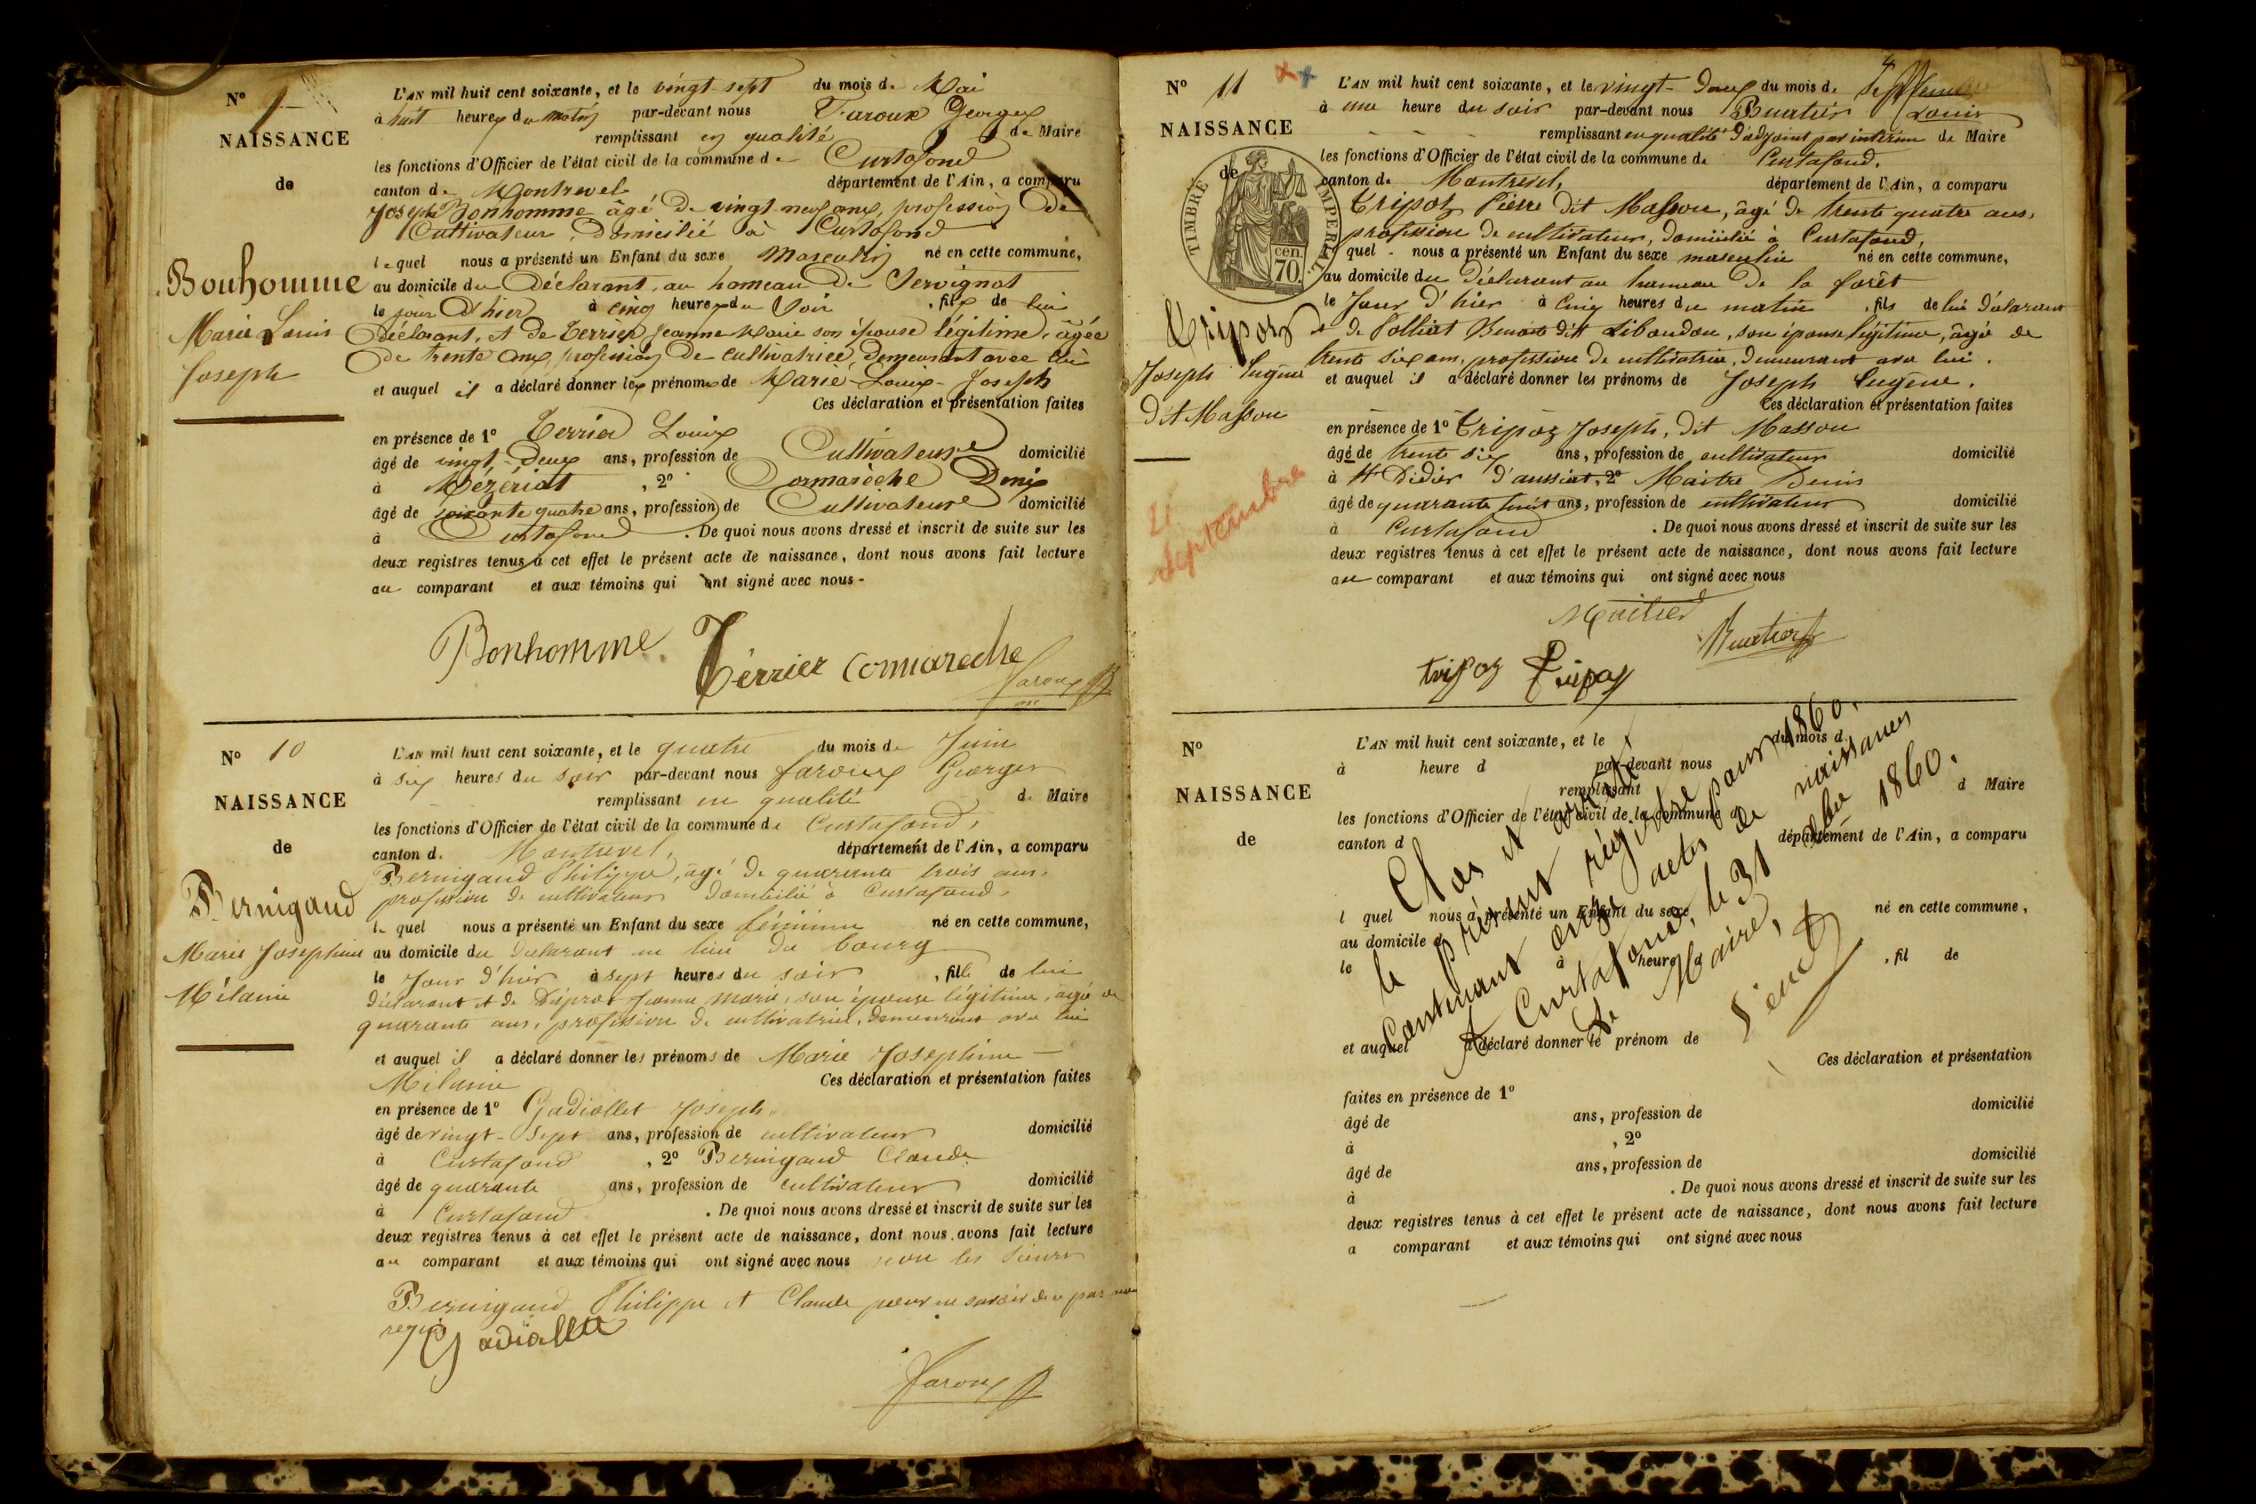 N° 9
NAISSANCE
de
Bonhomme
Marie Louis
Joseph
L'AN mil huit cent soixante, et le vingt-sept du mois de Mai
à huit heures du matin par-devant nous Faroux Georges
remplissant en qualité de Maire
les fonctions d'Officier de l'état civil de la commune de Curtafond
canton de Montrevel département de l'Ain, a comparu
Joseph Bonhomme âgé de vingt-neuf ans, profession de
Cultivateur, domicilié à Curtafond
lequel nous a présenté un Enfant du sexe Masculin né en cette commune,
au domicile du Déclarant, au hameau de Servignat
le jour d'hier à cinq heures du Soir, fils de lui
déclarant, et de Terrier Jeanne Marie son épouse légitime, âgée
de trente ans, profession de cultivatrice, demeurant avec lui
et auquel il a déclaré donner les prénoms de Marie Louis-Joseph
Ces déclaration et présentation faites
en présence de 1° Terrier Louis
âgé de vingt-deux ans, profession de Cultivateur domicilié
à Mézériat, 2° Cormarèche Denis
âgé de soixante quatre ans, profession de Cultivateur domicilié
à Curtafond. De quoi nous avons dressé et inscrit de suite sur les
deux registres tenus à cet effet le présent acte de naissance, dont nous avons fait lecture
au comparant et aux témoins qui ont signé avec nous-
Bonhomme Terrier Cormareche
Faroux
N° 10
NAISSANCE
de
Bernigaud
Marie Joséphine
Mélanie
L'AN mil huit cent soixante, et le quatre du mois de Juin
à six heures du soir par-devant nous faroux Georges
remplissant en qualité de Maire
les fonctions d'Officier de l'état civil de la commune de Curtafond,
canton de Montrevel, département de l'Ain, a comparu
Bernigaud Philippe, âgé de quarante trois ans,
profession de cultivateur domicilié à Curtafond,
le quel nous a présenté un Enfant du sexe féminin né en cette commune,
au domicile du déclarant au lieu du bourg
le Jour d'hier à sept heures du soir, fille de lui
déclarant et de Jeanne Marie, son épouse légitime, âgée de
quarante ans, profession de cultivatrice, demeurant avec lui
et auquel il a déclaré donner les prénoms de Marie Joséphine-
Mélanie Ces déclaration et présentation faites
en présence de 1° Gadiollet Joseph,
âgé de vingt-sept ans, profession de cultivateur domicilié
à Curtafond, 2° Bernigaud Claude
âgé de quarante ans, profession de cultivateur domicilié
à Curtafond. De quoi nous avons dressé et inscrit de suite sur les
deux registres tenus à cet effet le présent acte de naissance, dont nous avons fait lecture
au comparant et aux témoins qui ont signé avec nous non les sieurs
Bernigaud Philippe et Claude pour ne savoir de ce par nous
requis
Gadiollet
Faroux
N° 11
NAISSANCE
de
TIMBRE IMPERIAL
70 cen.
Tripoz
Joseph Eugène
dit Masson
21
septembre
L'AN mil huit cent soixante, et le vingt-deux du mois de Septembre
à une heure du soir par-devant nous Buatier Louis
remplissant en qualité d'adjoint par intérim de Maire
les fonctions d'Officier de l'état civil de la commune de Curtafond.
canton de Montrevel, département de l'Ain, a comparu
Tripoz Pierre dit Masson, âgé de trente quatre ans,
profession de cultivateur, domicilié à Curtafond,
quel nous a présenté un Enfant du sexe masculin né en cette commune,
au domicile du déclarant au hameau de la forêt
le Jour d'hier à cinq heures du matin, fils de lui déclarant
et de Polliat Benoite dit Libaudon, son épouse légitime, âgée de
trente six ans, profession de cultivatrice, demeurant avec lui.
et auquel il a déclaré donner les prénoms de Joseph Eugène.
Ces déclaration et présentation faites
en présence de 1° Tripoz Joseph, dit Masson
âgé de trente six ans, profession de cultivateur domicilié
à St Didier d'aussiat, 2° Maitre Denis
âgé de quarante huit ans, profession de cultivateur domicilié
à Curtafond. De quoi nous avons dressé et inscrit de suite sur les
deux registres tenus à cet effet le présent acte de naissance, dont nous avons fait lecture
au comparant et aux témoins qui ont signé avec nous
Maitre
Buatier
tripoz Tripoz
N°
NAISSANCE
de
L'AN mil huit cent soixante, et le du mois d
à heure d par-devant nous
remplissant d Maire
les fonctions d'Officier de l'état civil de la commune d
canton d département de l'Ain, a comparu
l quel nous a présenté un Enfant du sexe né en cette commune,
au domicile d
le à heure d, fil de
et auquel a déclaré donner le prénom de
Ces déclaration et présentation
faites en présence de 1°
âgé de ans, profession de domicilié
à, 2°
âgé de ans, profession de domicilié
à. De quoi nous avons dressé et inscrit de suite sur les
deux registres tenus à cet effet le présent acte de naissance, dont nous avons fait lecture
a comparant et aux témoins qui ont signé avec nous
Clos et arrêté
le présent régistre pour 1860,
Contenant onze actes de naissances
A Curtafond, le 31 xbre 1860.
Le Maire,